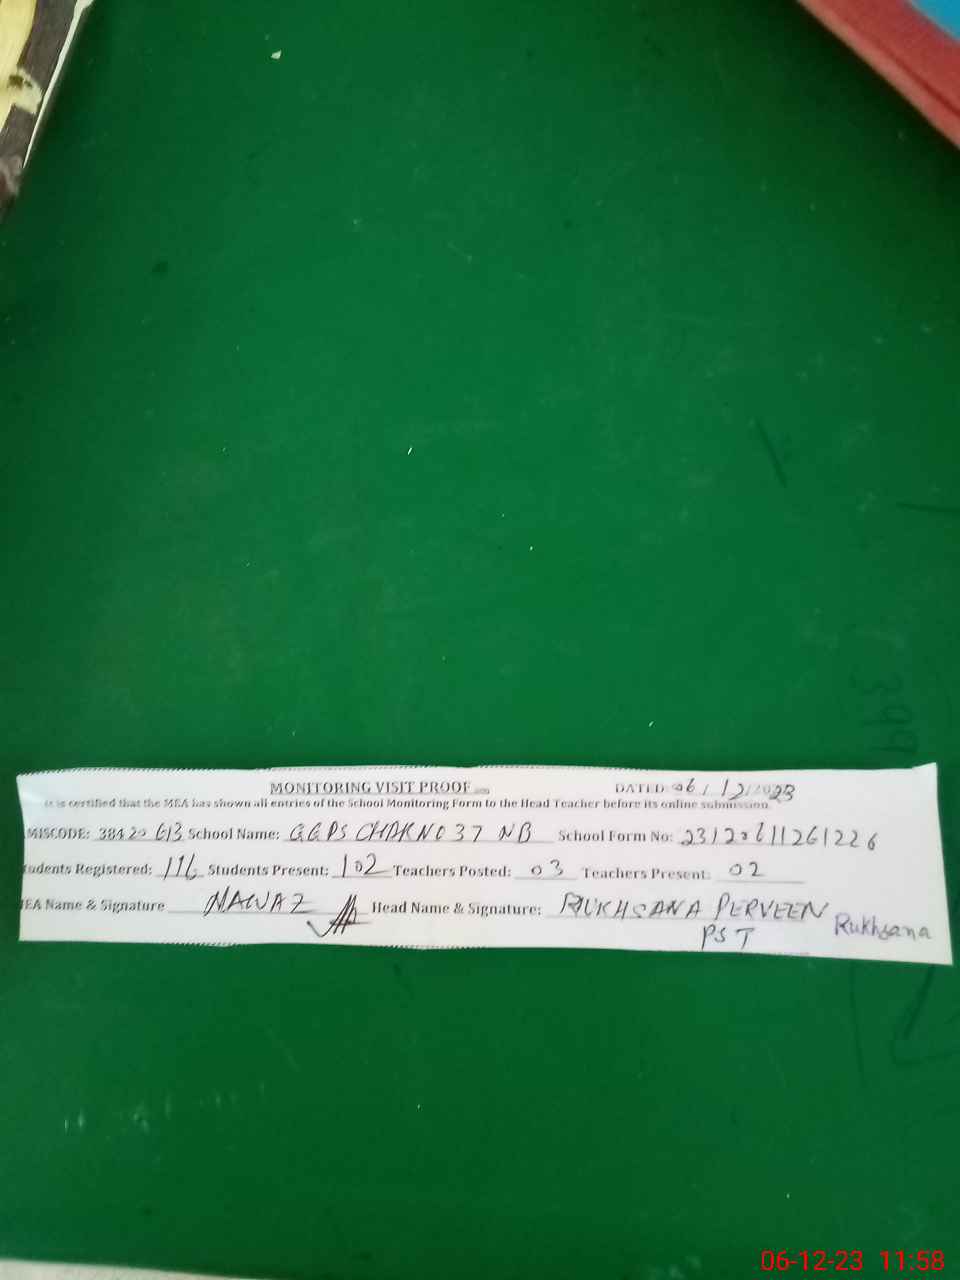 MONITORING VISIT PROOF DATED: 06/12/2023
It is certified that the MEA has shown all entries of the School Monitoring Form to the Head Teacher before its online submission.
MISCODE: 38420613 School Name: GGPS CHAK NO 37 NB School Form No: 23120611261226
udents Registered: 116 Students Present: 102 Teachers Posted: 03 Teachers Present: 02
EA Name & Signature NAWAZ Head Name & Signature: RUKHSANA PERVEEN Rukhsana
PST
399
06-12-23 11:58